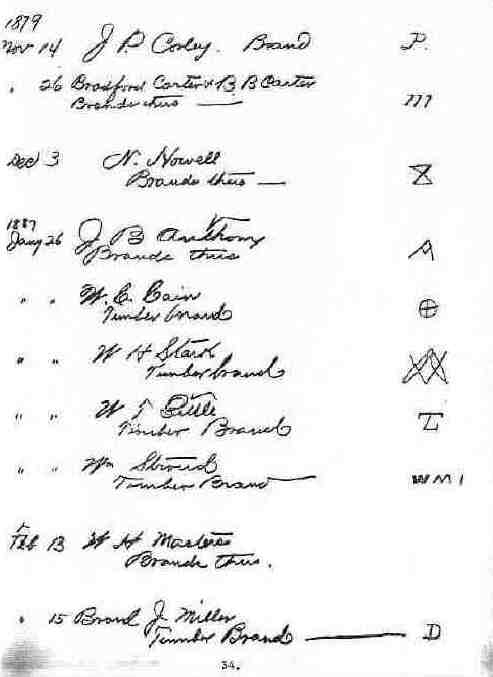 1879
Nov 14 J P Corley. Brand P.
" 26 Bradford Carter & B. B Carter
Brands thus — m
Dec 3 N. Nowell
Brands thus —
1887
Jany 26 J B Anthony A
Brands thus
" " W. C. Cain
Timber brand
" " W H Stark
Timber brand
" " W T
Timber Brand
" " Wm Stroud
Timber Brand — WM1
Feb 13 W H Masters
Brands thus.
" 15 J. Miller
Timber Brand — D
34.